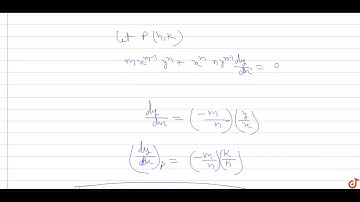 Let P.(h,k)
mx^{m-1} y^n + x^m n y^{n-1} dy/dx = 0
dy/dx = (-m/n)(y/x)
(dy/dx)_P = (-m/n)(k/h)